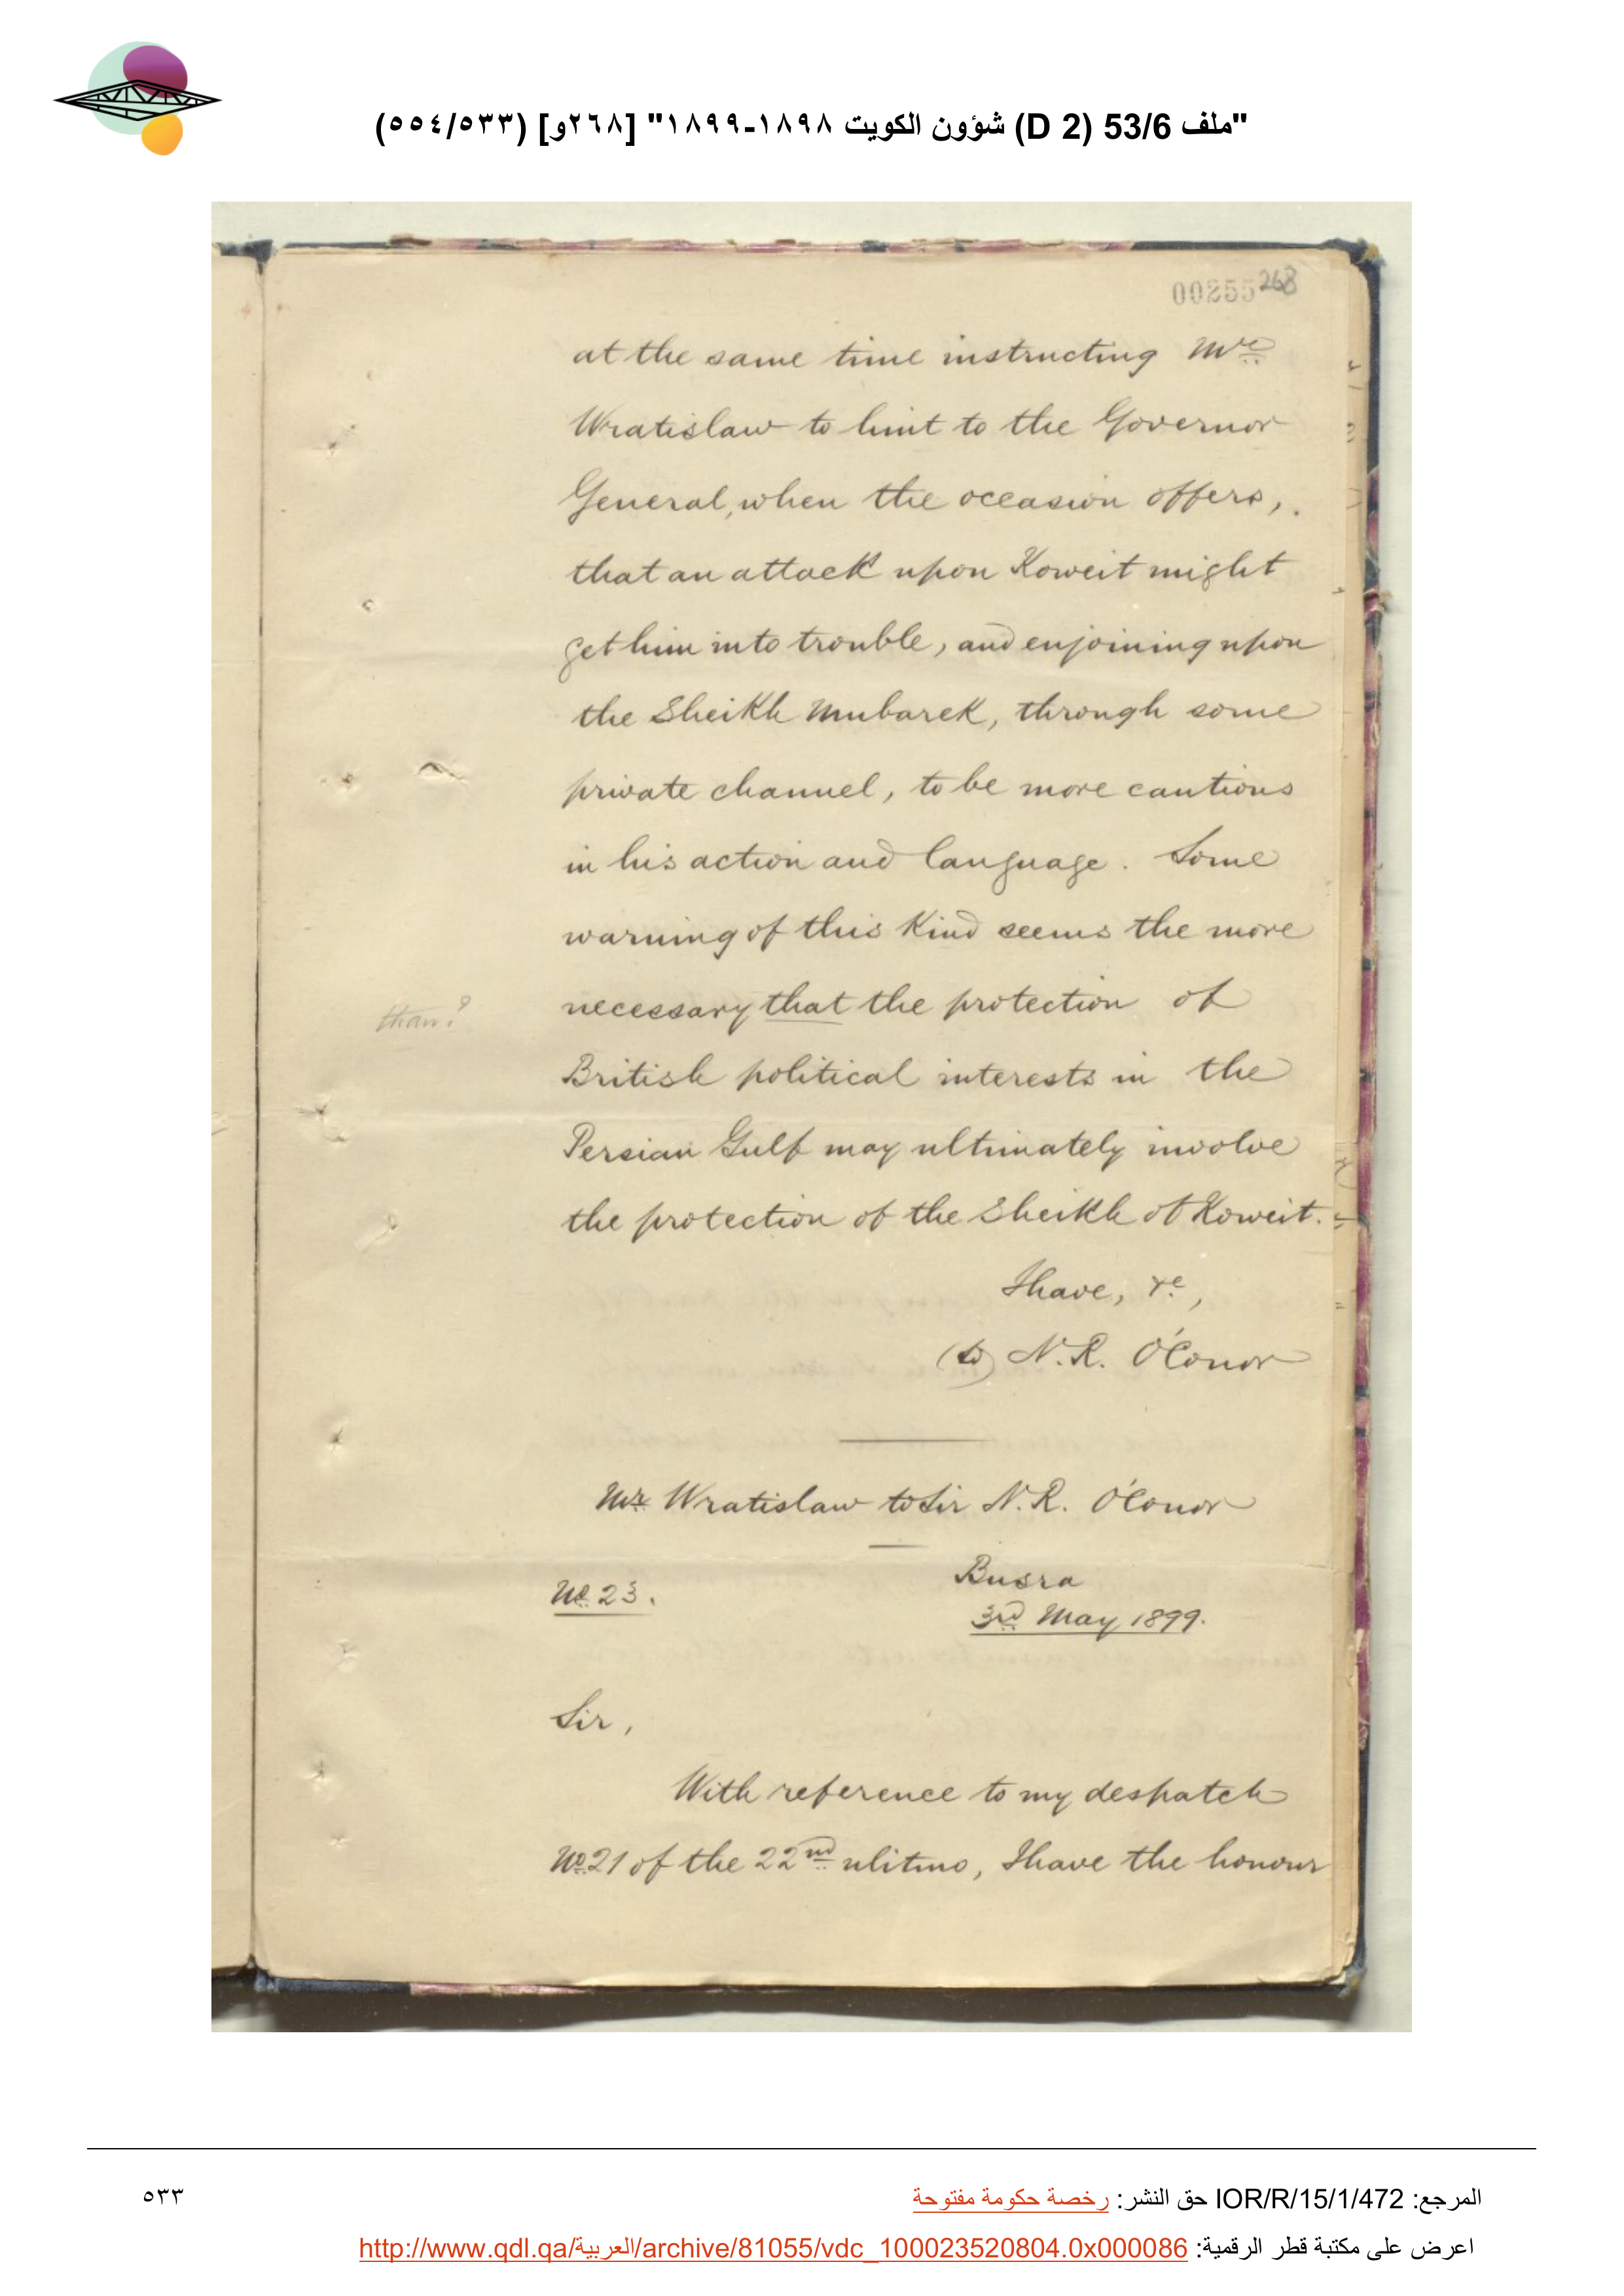 "ملف 53/6 (D 2) شؤون الكويت ١٨٩٨-١٨٩٩" [٢٦٨و] (٥٥٤/٥٣٣)
00255 268
at the same time instructing Mr
Wratislaw to hint to the Governor
General, when the occasion offers,
that an attack upon Koweit might
get him into trouble, and enjoining upon
the Sheikh Mubarek, through some
private channel, to be more cautious
in his action and language. Some
warning of this kind seems the more
than?
necessary that the protection of
British political interests in the
Persian Gulf may ultimately involve
the protection of the Sheikh of Koweit.
I have, &c,
(Sd) N. R. O'Conor
Mr Wratislaw to Sir N. R. O'Conor
No 23.
Busra
3rd May 1899.
Sir,
With reference to my despatch
No 21 of the 22nd ulitmo, I have the honour
المرجع: IOR/R/15/1/472 حق النشر: رخصة حكومة مفتوحة
٥٣٣
اعرض على مكتبة قطر الرقمية: http://www.qdl.qa/العربية/archive/81055/vdc_100023520804.0x000086